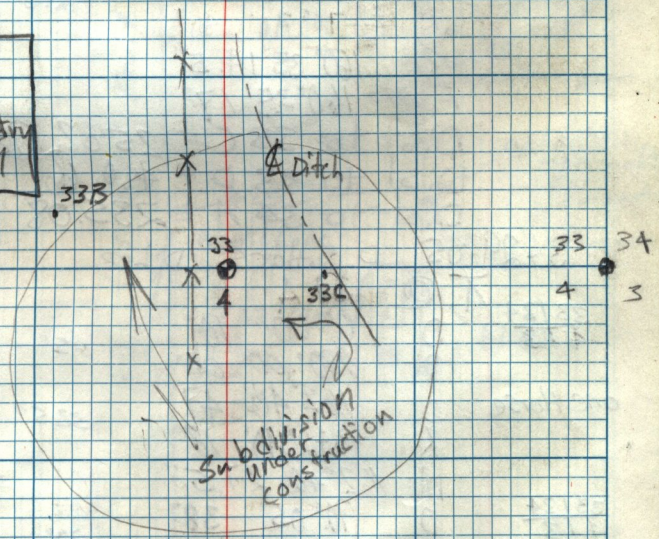 try
33B
℄ Ditch
33
4
33 34
4 3
33C
Subdivision
under
construction